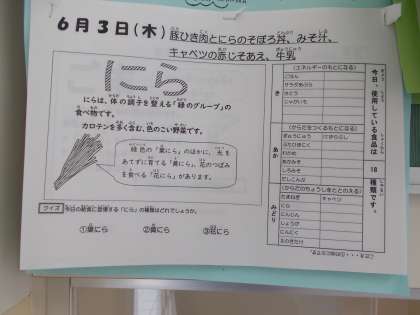 6月3日(木)
豚ひき肉とにらのそぼろ丼、みそ汁、
キャベツの赤じそあえ、牛乳
にら
にらは、体の調子を整える「緑のグループ」の
食べ物です。
カロテンを多く含む、色のこい野菜です。
緑色の「葉にら」のほかに、光を
あてずに育てる「黄にら」、花のつぼみ
を食べる「花にら」があります。
クイズ 今日の給食に登場する「にら」の種類はどれでしょうか。
①葉にら ②黄にら ③花にら
今日、使用している食品は
18
種類です。
き
(エネルギーのもとになる)
ごはん
サラダあぶら
さとう
じゃがいも
あか
(からだをつくるもとになる)
ぎゅうにゅう
ぶたひきにく
わかめ
あかみそ
しろみそ
だしこんぶ
みどり
(からだのちょうしをととのえる)
たまねぎ キャベツ
にら
にんじん
しょうが
にんにく
えのきたけ